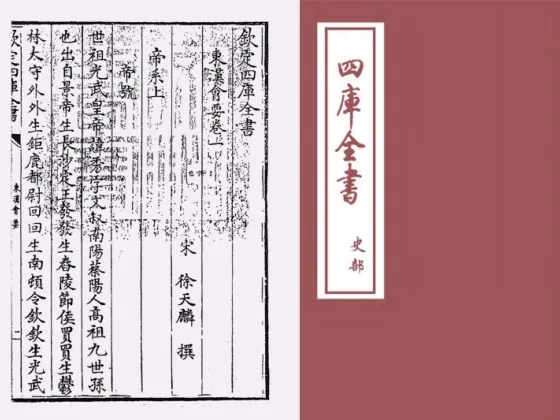 欽定四庫全書
東漢會要卷一
宋 徐天麟 撰
帝系上
帝號
世祖光武皇帝諱秀字文叔南陽蔡陽人高祖九世孫
也出自景帝生長沙定王發發生舂陵節侯買買生鬱
林太守外外生鉅鹿都尉回回生南頓令欽欽生光武
欽定四庫全書
東漢會要
四庫全書
史部